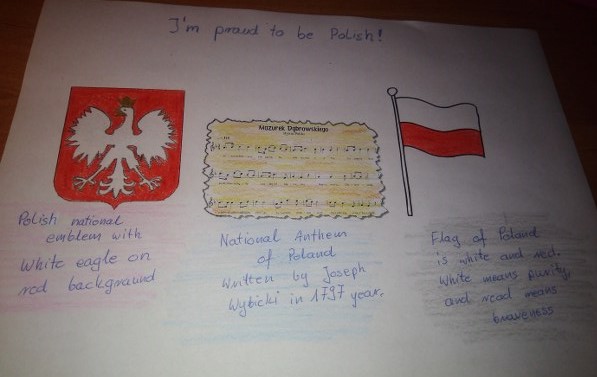 I'm proud to be Polish!
Mazurek Dąbrowskiego
Polish national
emblem with
White eagle on
red background
National Anthem
of Poland
Written by Joseph
Wybicki in 1797 year.
Flag of Poland
is white and red.
White means purity,
and read means
braveness